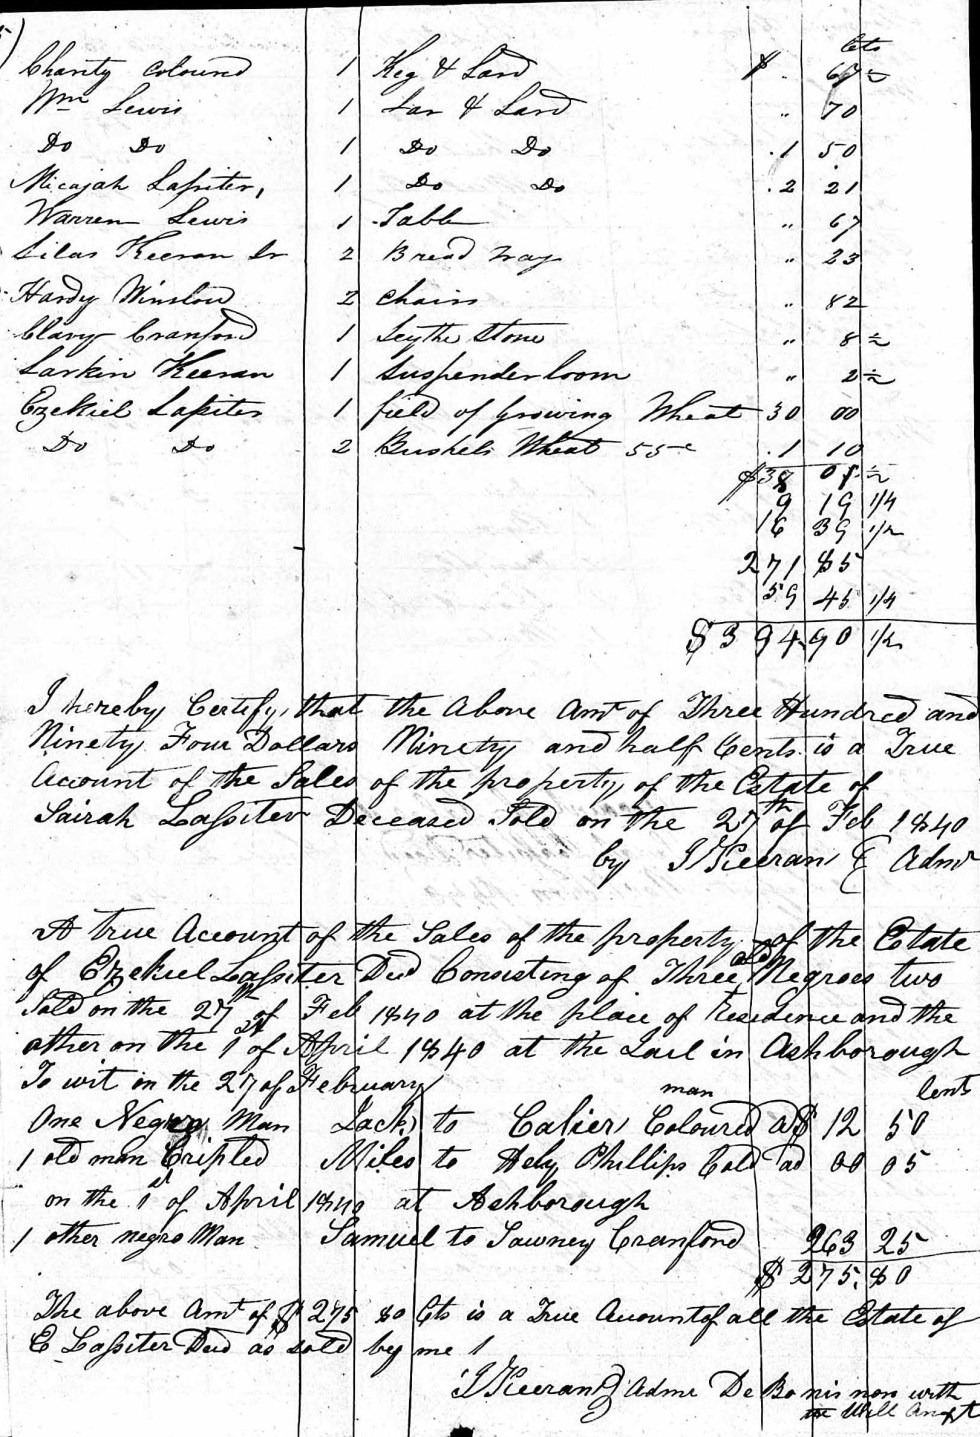 5)
cts
Charity Coloured 1 Keg & Lard $ . 67 ½
Wm Lewis 1 Jar & Lard " 70
Do Do 1 Do Do . 1 50
Micajah Lassiter, 1 Do Do . 2 21
Warren Lewis 1 Table " 67
Silas Keeran Sr 2 Bread Trays " 23
Hardy Winslow 2 Chairs " 82
Clary Cranford 1 Scythe Stone " 8 ½
Larkin Keeran 1 Suspender loom " 2 ½
Ezekiel Lassiter 1 field of growing Wheat 30 00
Do Do 2 Bushels Wheat 55c . 1 10
$38 01 ½
9 19 1/4
16 39 1/2
271 85
59 45 1/4
$394 90 1/2
I hereby Certify, that the Above Amt of Three Hundred and
Ninety Four Dollars Ninety and half Cents is a True
Account of the Sales of the property of the Estate of
Sairah Lassiter Deceased Sold on the 27th of Feb 1840
by J Keeran Admr
A true Account of the Sales of the property of the Estate
of Ezekiel Lassiter Decd Consisting of Three old Negroes two
Sold on the 27th of Feb 1840 at the place of Residence and the
other on the 1st of April 1840 at the Jail in Ashborough
To wit on the 27 of February cents
One Negro Man Jack to Calier Coloured man at $ 12 50
1 old man Cripled Miles to Hely Phillips Cold ad 00 05
on the 1st of April 1840 at Ashborough
1 other negro Man Samuel to Sawney Cranford 263 25
$ 275. 80
The above Amt of $ 275 80 Cts is a True Account of all the Estate of
E Lassiter Decd as sold by me
J Keeran Admr De Bonis non with
the Will Anext